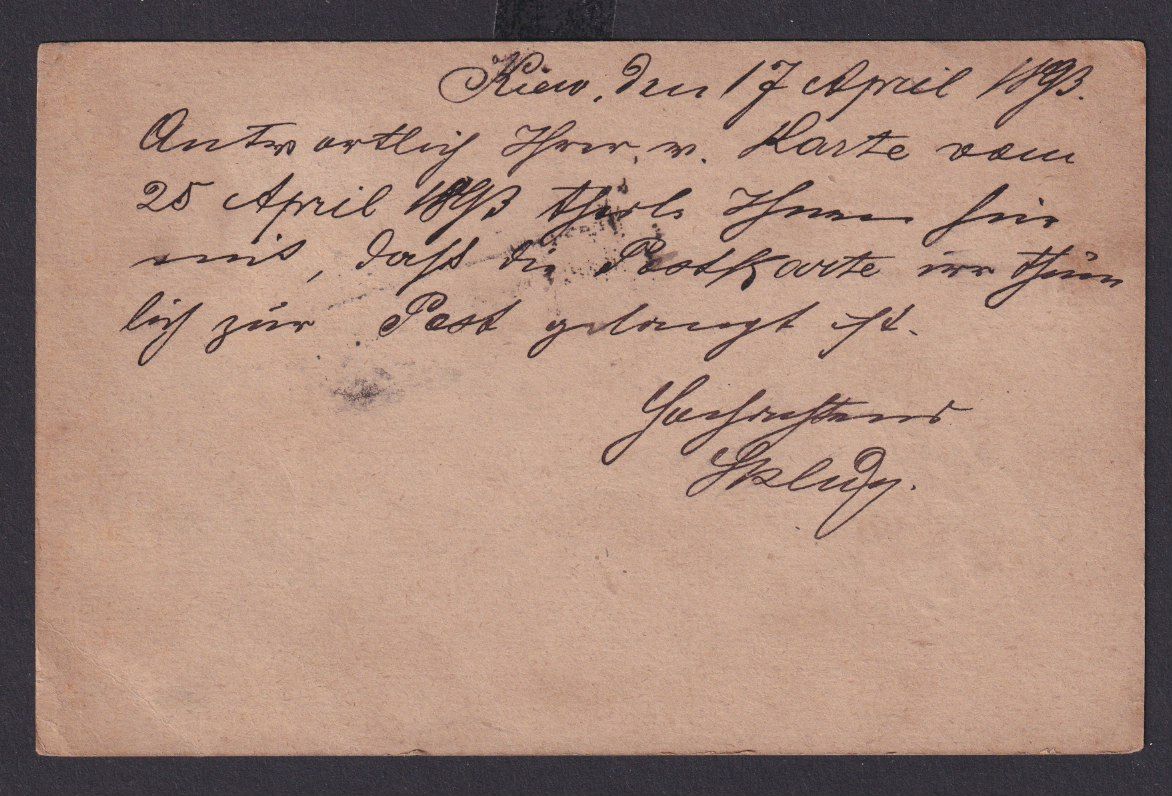 Kiew, den 17 April 1893.
Antwortlich Ihrer v. Karte vom
25 April 1893 theile Ihnen hier
mit, daß die Postkarte irrthüm
lich zur Post gelangt ist.
Hochachtend